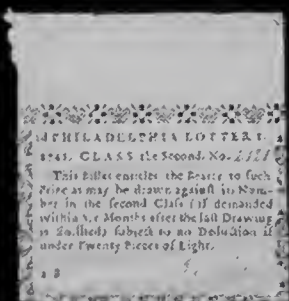 PHILADELPHIA LOTTERY
CLASS the Second. No.
This Billet entitles the Bearer to such
Prize as may be drawn against its Num-
ber in the second Class (if demanded
within Months after the last Drawing
is subject to no Deduction if
under Twenty Pieces of Eight.